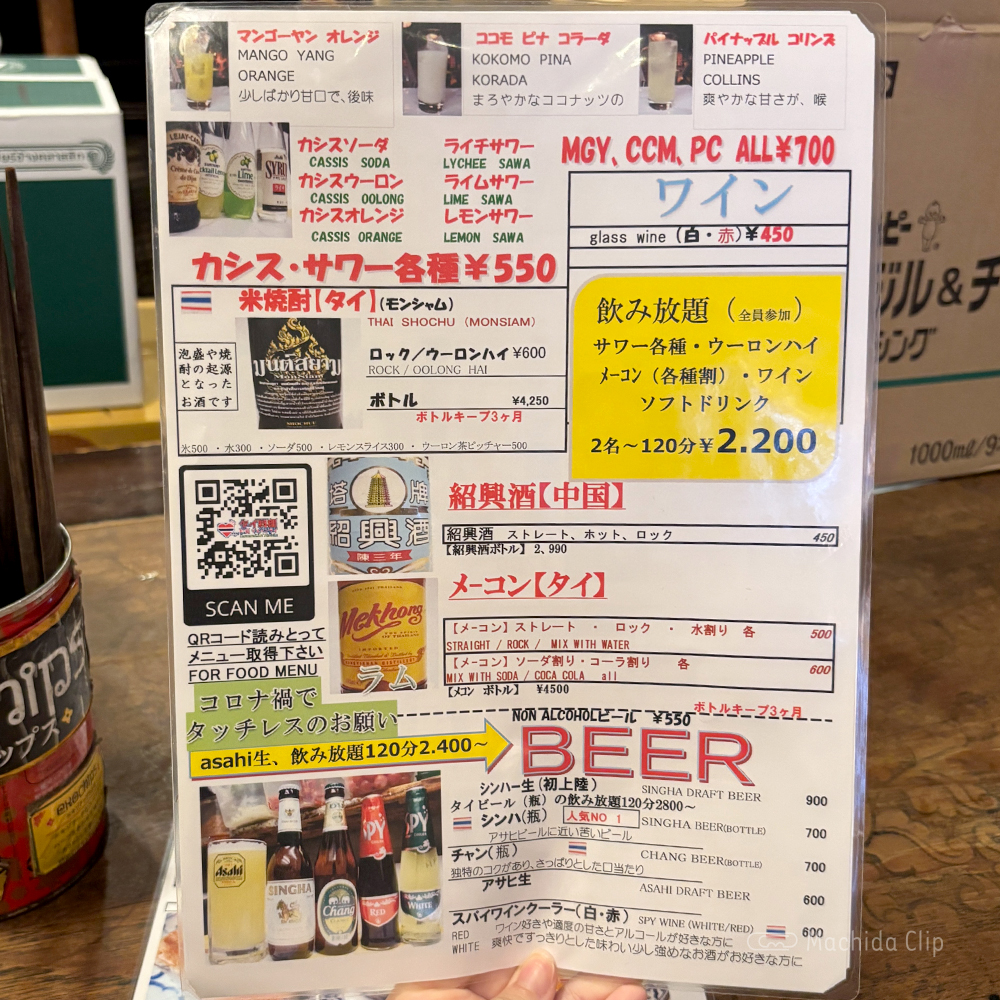 マンゴーヤン オレンジ
MANGO YANG
ORANGE
少しばかり甘口で、後味
ココモ ピナ コラーダ
KOKOMO PINA
KORADA
まろやかなココナッツの
パイナップル コリンズ
PINEAPPLE
COLLINS
爽やかな甘さが、喉
カシスソーダ
CASSIS SODA
カシスウーロン
CASSIS OOLONG
カシスオレンジ
CASSIS ORANGE
ライチサワー
LYCHEE SAWA
ライムサワー
LIME SAWA
レモンサワー
LEMON SAWA
カシス・サワー各種￥550
MGY、CCM、PC ALL￥700
ワイン
glass wine (白・赤)￥450
米焼酎【タイ】(モンシャム)
THAI SHOCHU (MONSIAM)
泡盛や焼
酎の起源
となった
お酒です
ロック／ウーロンハイ ¥600
ROCK / OOLONG HAI
ボトル ¥4,250
ボトルキープ3ヶ月
氷500 ・水300 ・ソーダ500 ・レモンスライス300 ・ウーロン茶ピッチャー500
มนต์สยาม
MONSIAM
SHOCHU
飲み放題（全員参加）
サワー各種・ウーロンハイ
メーコン（各種割）・ワイン
ソフトドリンク
2名～120分￥2.200
SCAN ME
QRコード読みとって
メニュー取得下さい
FOR FOOD MENU
塔牌
紹興酒
陳三年
Mekhong
ラム
紹興酒【中国】
紹興酒 ストレート、ホット、ロック 450
【紹興酒ボトル】 2、990
メーコン【タイ】
【メーコン】ストレート ・ ロック ・ 水割り 各 500
STRAIGHT / ROCK / MIX WITH WATER
【メーコン】ソーダ割り・コーラ割り 各 600
MIX WITH SODA / COCA COLA all
【メコン ボトル】 ¥4500
ボトルキープ3ヶ月
コロナ禍で
タッチレスのお願い
asahi生、飲み放題120分2.400～
NON ALCOHOLビール ￥550
BEER
シンハー生(初上陸) SINGHA DRAFT BEER 900
タイビール（瓶）の飲み放題120分2800～
シンハ(瓶) 人気NO 1 SINGHA BEER(BOTTLE) 700
アサヒビールに近い苦いビール
チャン(瓶) CHANG BEER(BOTTLE) 700
独特のコクがあり、さっぱりとした口当たり
アサヒ生 ASAHI DRAFT BEER 600
スパイワインクーラー(白・赤) SPY WINE (WHITE/RED) 600
RED ワイン好きや適度の甘さとアルコールが好きな方に
WHITE 爽快ですっきりとした味わい少し強めなお酒がお好きな方に
Asahi
SINGHA
Chang
SPY
RED
SPY
WHITE
LEJAY-CASSIS
Lime
SYRUP
ップス
ジル＆チ
シング
1000ml/9
Machida Clip